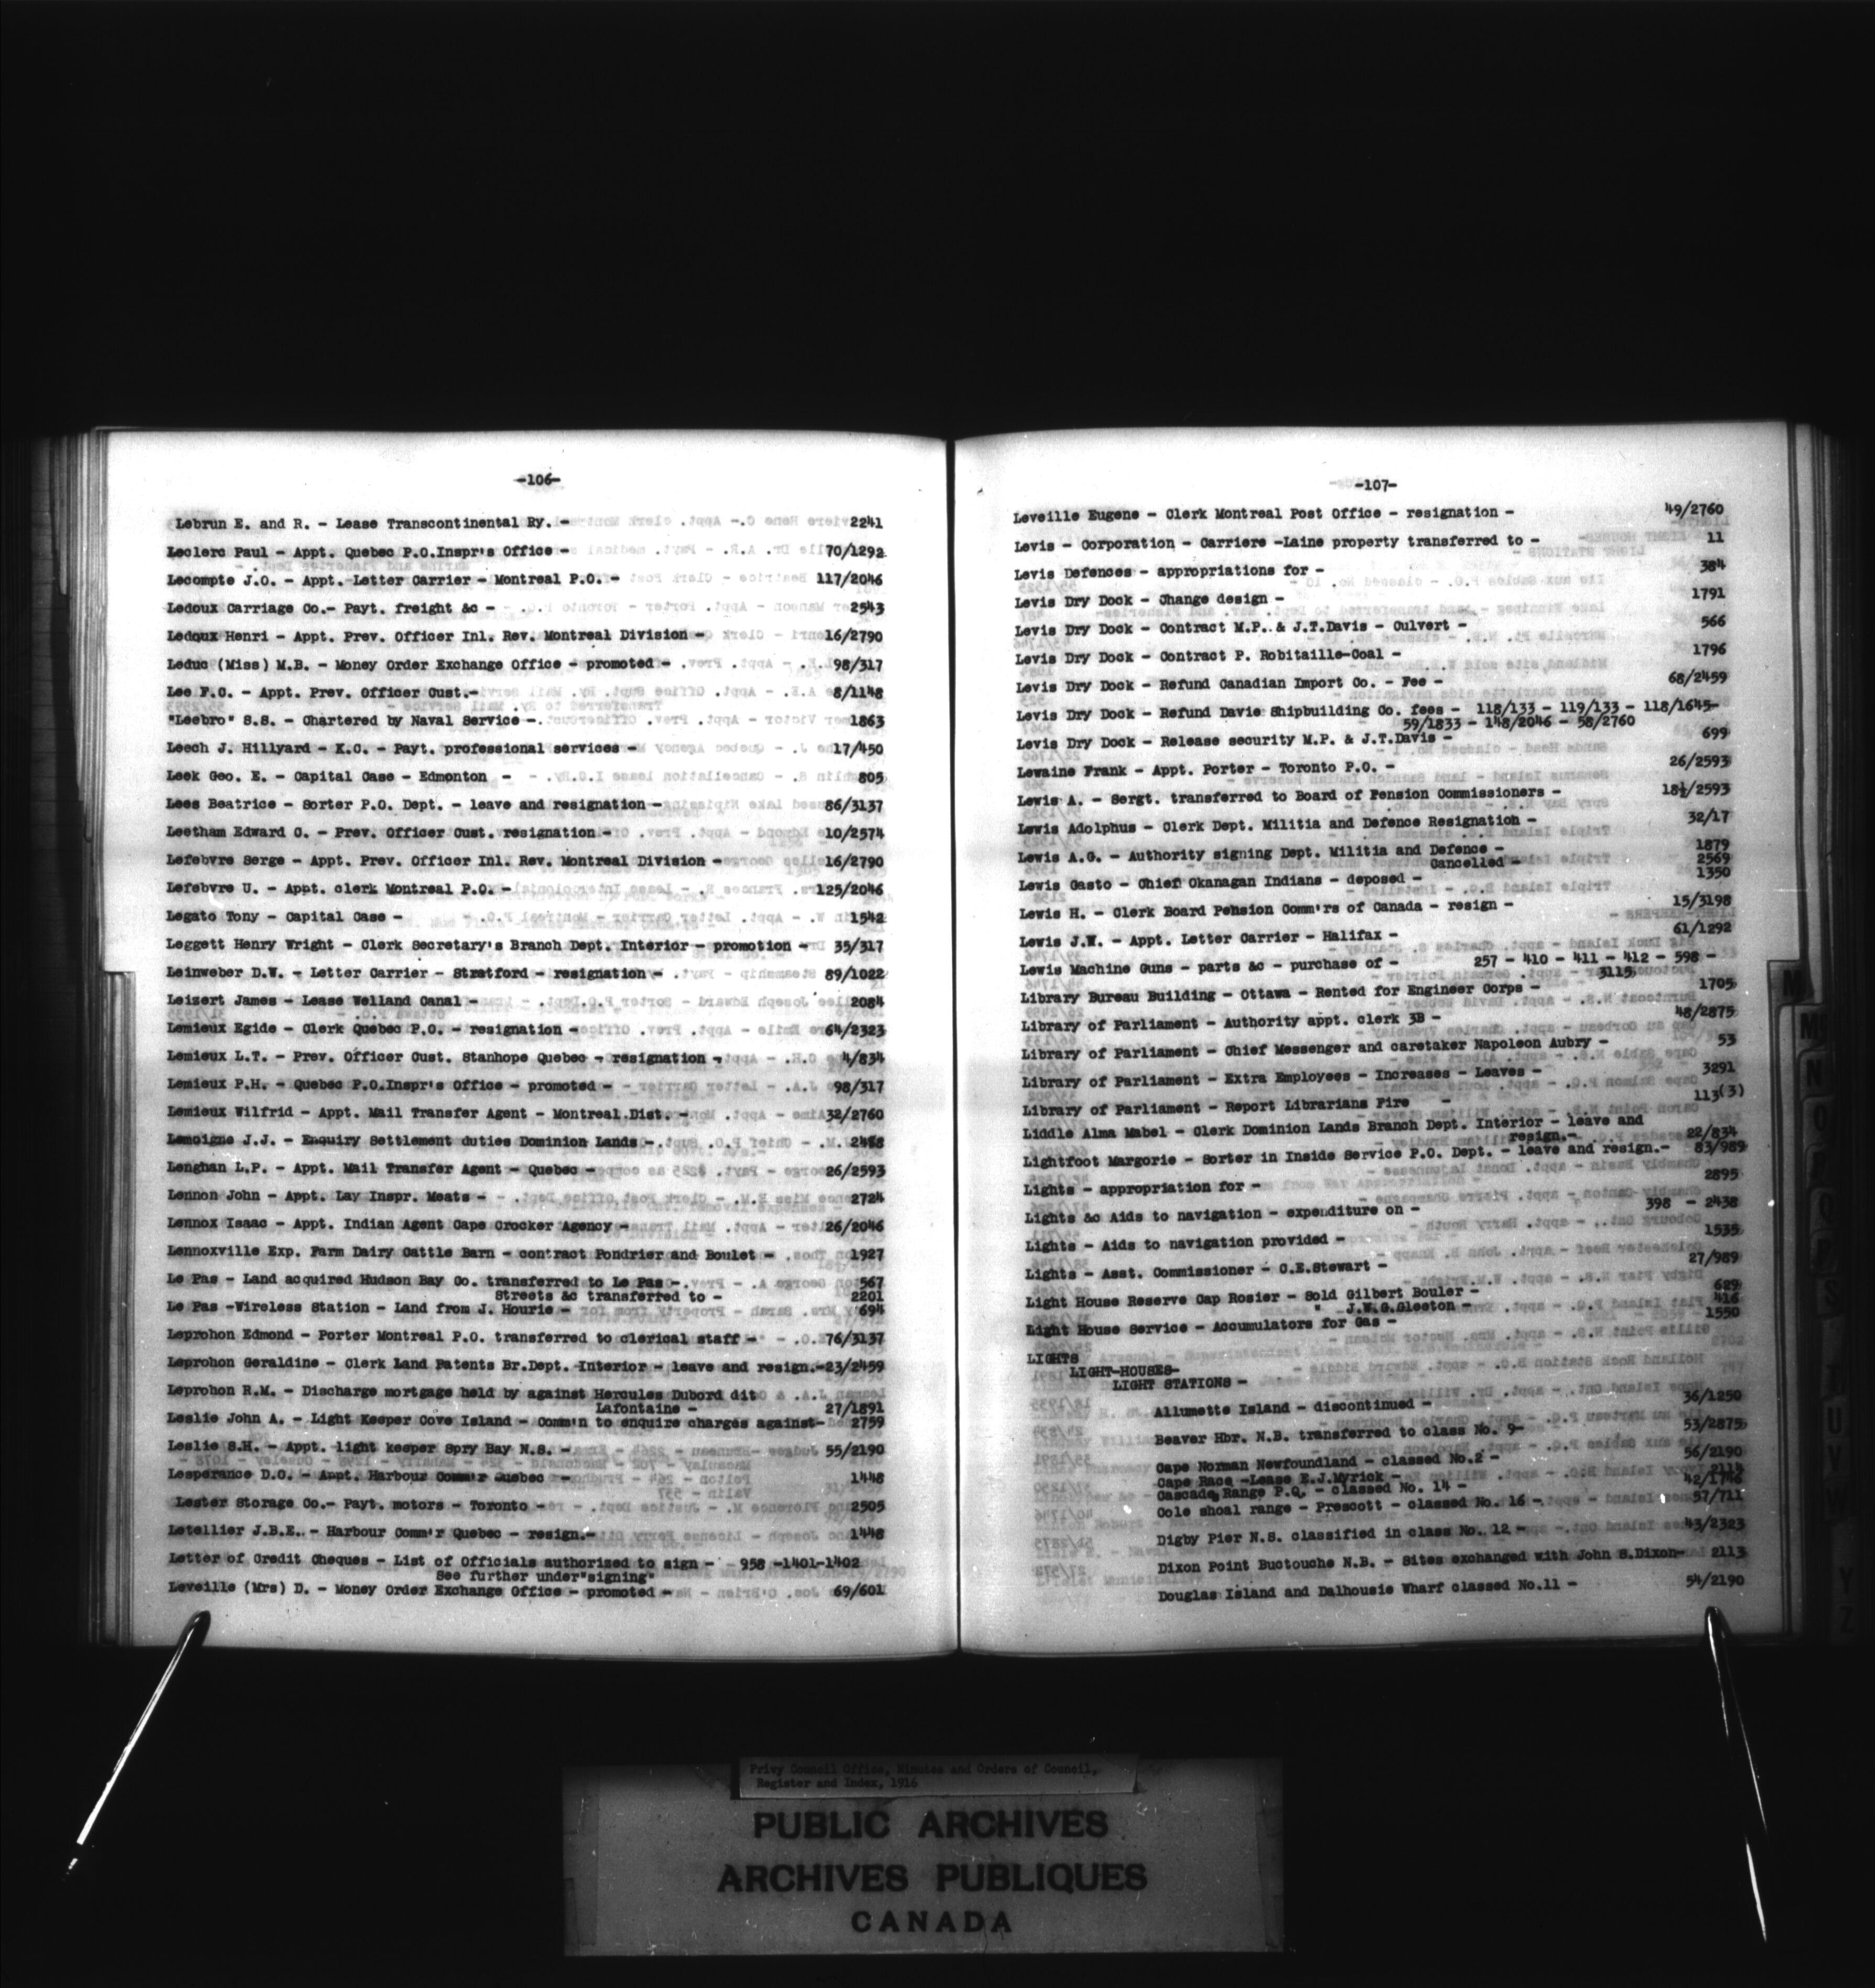 -106-
Lebrun E. and R. - Lease Transcontinental Ry. - 2241
Leclerc Paul - Appt. Quebec P.O.Inspr's Office - 70/1292
Lecompte J.O. - Appt. Letter Carrier - Montreal P.O. - 117/2046
Ledoux Carriage Co.- Payt. freight &c - 2543
Ledoux Henri - Appt. Prev. Officer Inl. Rev. Montreal Division - 16/2790
Leduc (Miss) M.B. - Money Order Exchange Office - promoted - 98/317
Lee F.C. - Appt. Prev. Officer Cust.- 8/1148
"Leebro" S.S. - Chartered by Naval Service - 1863
Leech J. Hillyard - K.C. - Payt. professional services - 17/450
Leek Geo. E. - Capital Case - Edmonton - 805
Lees Beatrice - Sorter P.O. Dept. - leave and resignation - 86/3137
Leetham Edward C. - Prev. Officer Cust. resignation - 10/2574
Lefebvre Serge - Appt. Prev. Officer Inl. Rev. Montreal Division - 16/2790
Lefebvre U. - Appt. clerk Montreal P.O. - 125/2046
Legato Tony - Capital Case - 1542
Leggett Henry Wright - Clerk Secretary's Branch Dept. Interior - promotion - 35/317
Leinweber D.W. - Letter Carrier - Stratford - resignation - 89/1022
Leizert James - Lease Welland Canal - 2084
Lemieux Egide - Clerk Quebec P.O. - resignation - 64/2323
Lemieux L.T. - Prev. Officer Cust. Stanhope Quebec - resignation - 4/834
Lemieux P.H. - Quebec P.O.Inspr's Office - promoted - 98/317
Lemieux Wilfrid - Appt. Mail Transfer Agent - Montreal Dist. - 32/2760
Lemoigne J.J. - Enquiry Settlement duties Dominion Lands -
Lenghan L.P. - Appt. Mail Transfer Agent - Quebec - 26/2593
Lennon John - Appt. Lay Inspr. Meats - 2724
Lennox Isaac - Appt. Indian Agent Cape Crocker Agency - 26/2046
Lennoxville Exp. Farm Dairy Cattle Barn - contract Pondrier and Boulet - 1927
Le Pas - Land acquired Hudson Bay Co. transferred to Le Pas - 567
Streets &c transferred to - 2201
Le Pas -Wireless Station - Land from J. Hourie - 694
Leprohon Edmond - Porter Montreal P.O. transferred to clerical staff - 76/3137
Leprohon Geraldine - Clerk Land Patents Br.Dept. Interior - leave and resign.-23/2459
Leprohon R.M. - Discharge mortgage held by against Hercules Dubord dit
Lafontaine - 27/1891
Leslie John A. - Light Keeper Cove Island - Comm'n to enquire charges against- 2759
Leslie S.H. - Appt. light keeper Spry Bay N.S. - 55/2190
Lesperance D.O. - Appt. Harbour Comm'r Quebec - 1448
Lester Storage Co.- Payt. motors - Toronto - 2505
Letellier J.B.E. - Harbour Comm'r Quebec - resign.- 1448
Letter of Credit Cheques - List of Officials authorized to sign - 958 -1401-1402
See further under"signing"
Leveille (Mrs) D. - Money Order Exchange Office - promoted - 69/601
-107-
Leveille Eugene - Clerk Montreal Post Office - resignation - 49/2760
Levis - Corporation - Carriere -Laine property transferred to - 11
Levis Defences - appropriations for - 384
Levis Dry Dock - Change design - 1791
Levis Dry Dock - Contract M.P. & J.T.Davis - Culvert - 566
Levis Dry Dock - Contract P. Robitaille-Coal - 1796
Levis Dry Dock - Refund Canadian Import Co. - Fee - 68/2459
Levis Dry Dock - Refund Davie Shipbuilding Co. fees - 118/133 - 119/133 - 118/1645-
59/1833 - 148/2046 - 58/2760
Levis Dry Dock - Release security M.P. & J.T.Davis - 699
Lewaine Frank - Appt. Porter - Toronto P.O. - 26/2593
Lewis A. - Sergt. transferred to Board of Pension Commissioners - 18½/2593
Lewis Adolphus - Clerk Dept. Militia and Defence Resignation - 32/17
Lewis A.G. - Authority signing Dept. Militia and Defence - 1879
Cancelled - 2569
Lewis Gasto - Chief Okanagan Indians - deposed - 1350
Lewis H. - Clerk Board Pension Comm'rs of Canada - resign - 15/3198
Lewis J.W. - Appt. Letter Carrier - Halifax - 61/1292
Lewis Machine Guns - parts &c - purchase of - 257 - 410 - 411 - 412 - 598 -
3115
Library Bureau Building - Ottawa - Rented for Engineer Corps - 1705
Library of Parliament - Authority appt. clerk 3B - 48/2875
Library of Parliament - Chief Messenger and caretaker Napoleon Aubry - 53
Library of Parliament - Extra Employees - Increases - Leaves - 3291
Library of Parliament - Report Librarians Fire - 113(3)
Liddle Alma Mabel - Clerk Dominion Lands Branch Dept. Interior - leave and
resign.- 22/834
Lightfoot Margorie - Sorter in Inside Service P.O. Dept. - leave and resign.- 83/989
Lights - appropriation for - 2895
Lights &c Aids to navigation - expenditure on - 398 - 2438
Lights - Aids to navigation provided - 1535
Lights - Asst. Commissioner - C.E.Stewart - 27/989
Light House Reserve Cap Rosier - Sold Gilbert Bouler - 629
" J.W.G.Gleeton - 416
Light House Service - Accumulators for Gas - 1550
LIGHTS
LIGHT-HOUSES-
LIGHT STATIONS -
Allumette Island - discontinued - 36/1250
Beaver Hbr. N.B. transferred to class No. 9- 53/2875
Cape Norman Newfoundland - classed No.2 - 56/2190
Cape Race -Lease E.J.Myrick - 2114
Cascade Range P.Q. - classed No. 14 - 42/1746
Cole shoal range - Prescott - classed No. 16 - 57/711
Digby Pier N.S. classified in class No. 12 - 43/2323
Dixon Point Buctouche N.B. - Sites exchanged with John S.Dixon- 2113
Douglas Island and Dalhousie Wharf classed No.11 - 54/2190
M
M
N
Y
Z
Privy Council Office, Minutes and Orders of Council,
Register and Index, 1916
PUBLIC ARCHIVES
ARCHIVES PUBLIQUES
CANADA